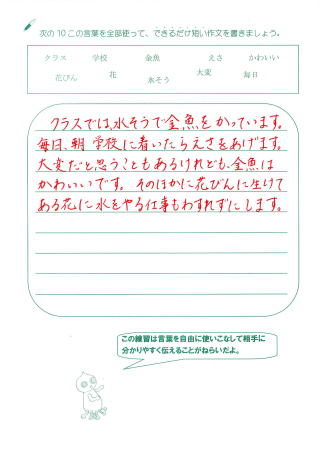 次の10この言葉を全部使って、できるだけ短い作文を書きましょう。
クラス 学校 金魚 えさ かわいい
花びん 花 水そう 大変 毎日
クラスでは、水そうで金魚をかっています。
毎日、朝 学校に着いたらえさをあげます。
大変だと思うこともあるけれども、金魚は
かわいいです。そのほかに花びんに生けて
ある花に水をやる仕事もわすれずにします。
この練習は言葉を自由に使いこなして相手に
分かりやすく伝えることがねらいだよ。